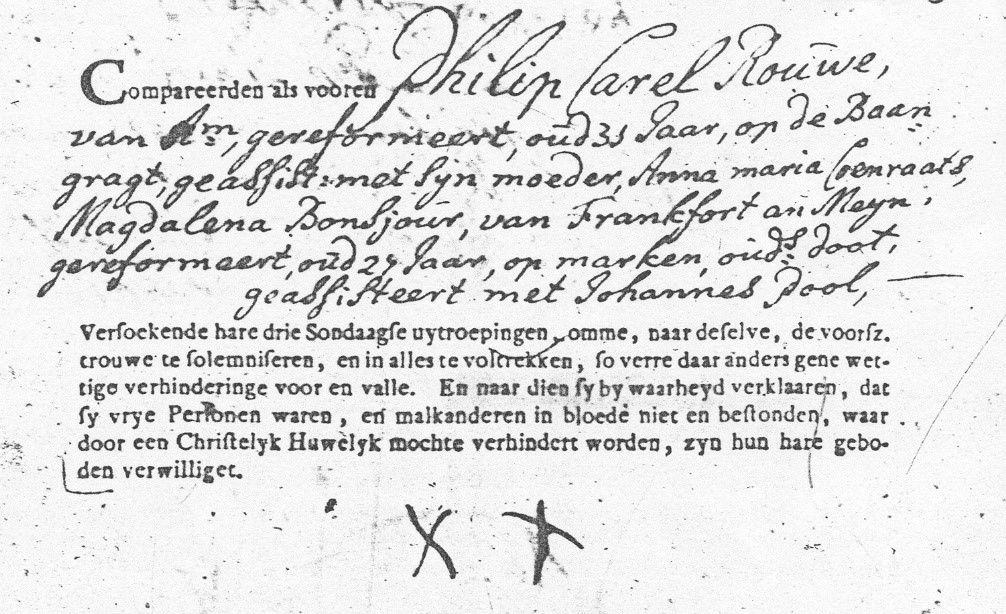 Compareerden als vooren Philip Carel Rouwe,
van Am, gereformeert, oud 31 Jaar, op de Baan
gragt, geassist: met syn moeder, Anna maria Coenraats,
Magdalena Bonsjour, van Frankfort an Meyn,
gereformeert, oud 27 Jaar, op marken, ouds: doot,
geassisteert met Johannes Pool,
Versoekende hare drie Sondaagse uytroepingen, omme, naar deselve, de voorsz.
trouwe te solemniseren, en in alles te voltrekken, so verre daar anders gene wet-
tige verhinderinge voor en valle. En naar dien sy by waarheyd verklaaren, dat
sy vrye Personen waren, en malkanderen in bloede niet en bestonden, waar
door een Christelyk Huwelyk mochte verhindert worden, zyn hun hare gebo-
den verwilliget.